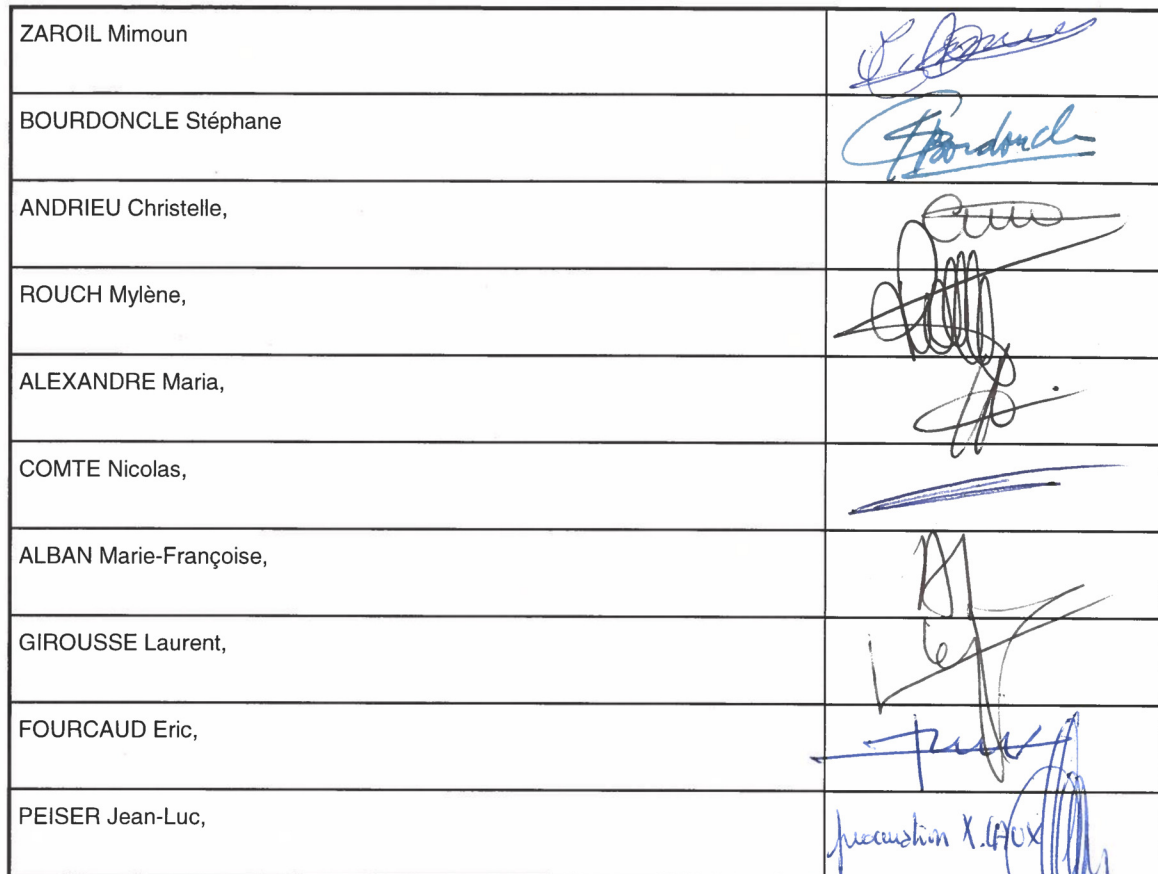 ZAROIL Mimoun
BOURDONCLE Stéphane
ANDRIEU Christelle,
ROUCH Mylène,
ALEXANDRE Maria,
COMTE Nicolas,
ALBAN Marie-Françoise,
GIROUSSE Laurent,
FOURCAUD Eric,
PEISER Jean-Luc,
procuration X. CAUX